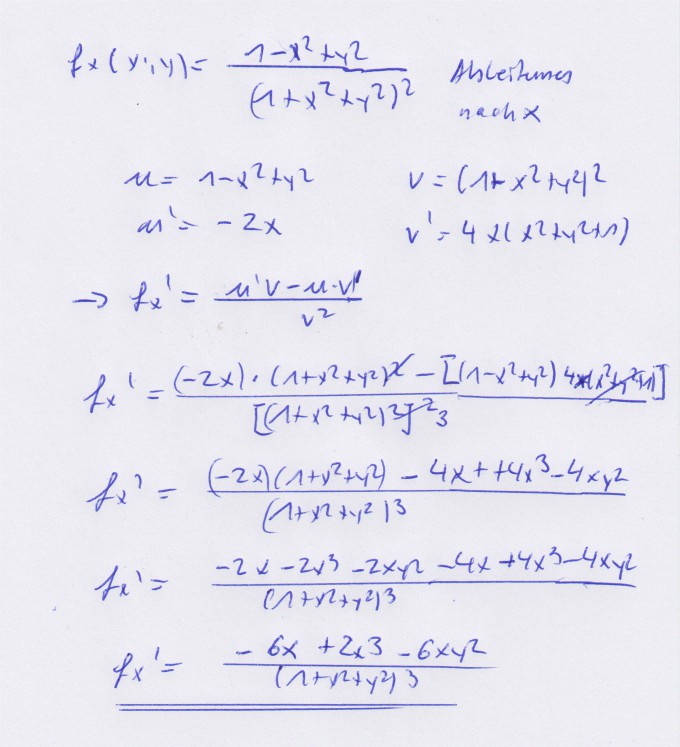 fx(x,y) = (1-x²+y²)/(1+x²+y²)² Ableitung
nach x
u = 1-x²+y² v = (1+x²+y²)²
u' = -2x v' = 4x(x²+y²+1)
→ fx' = (u'v - u·v')/v²
fx' = ((-2x)·(1+x²+y²)² - [(1-x²+y²) 4x(x²+y²+1)])/[(1+x²+y²)²]² 3
fx' = ((-2x)(1+x²+y²) - 4x + +4x³ - 4xy²)/(1+x²+y²)³
fx' = (-2x - 2x³ - 2xy² - 4x + 4x³ - 4xy²)/(1+x²+y²)³
fx' = (-6x + 2x3 - 6xy²)/(1+x²+y²)3